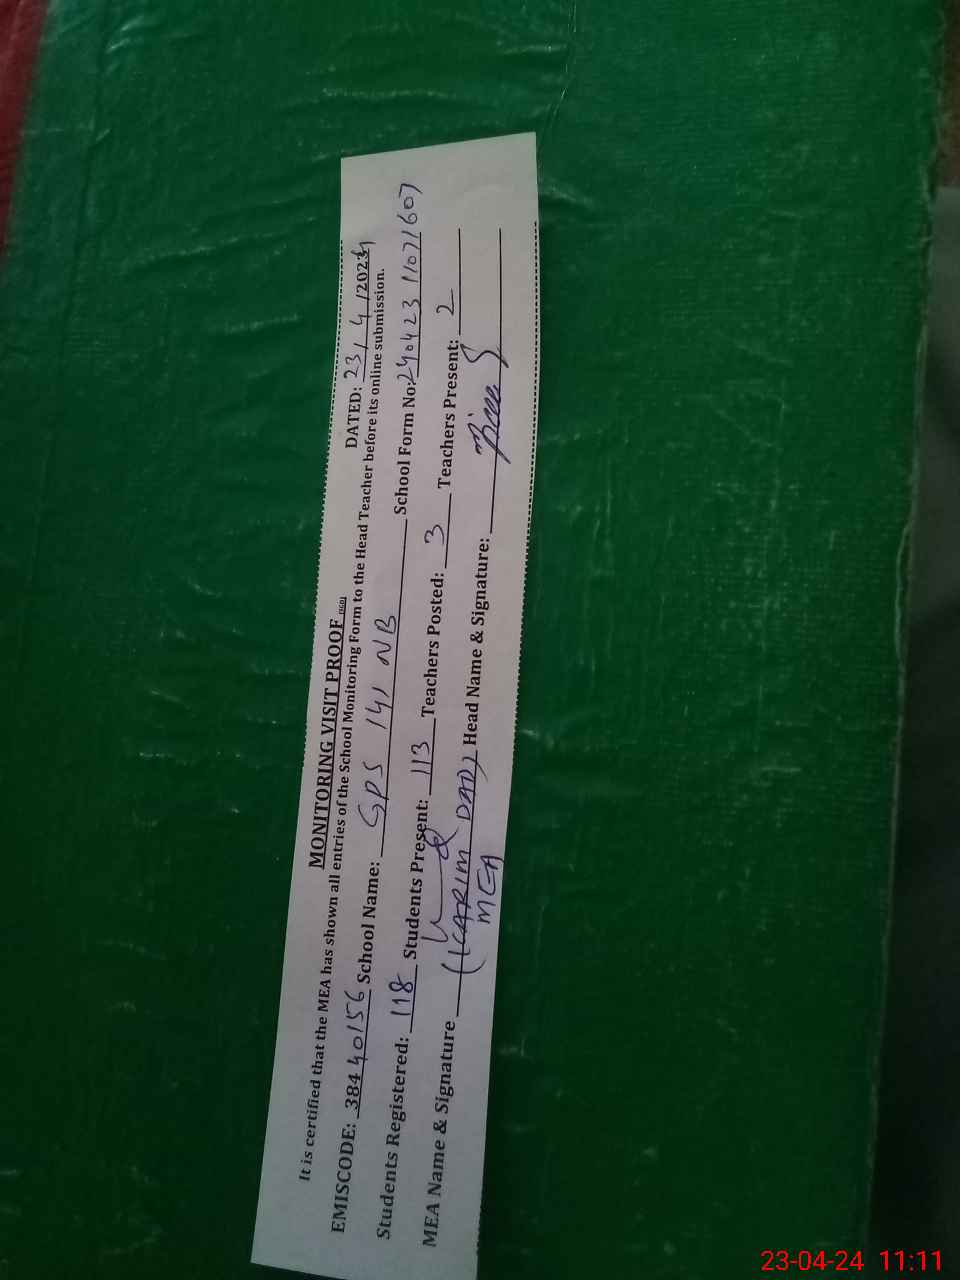 MONITORING VISIT PROOF
DATED: 23/4/2024
It is certified that the MEA has shown all entries of the School Monitoring Form to the Head Teacher before its online submission.
EMISCODE: 38440156 School Name: GPS 141 NB School Form No: 24042311071607
Students Registered: 118 Students Present: 113 Teachers Posted: 3 Teachers Present: 2
MEA Name & Signature (KARIM DAD) Head Name & Signature:
MEA
23-04-24 11:11